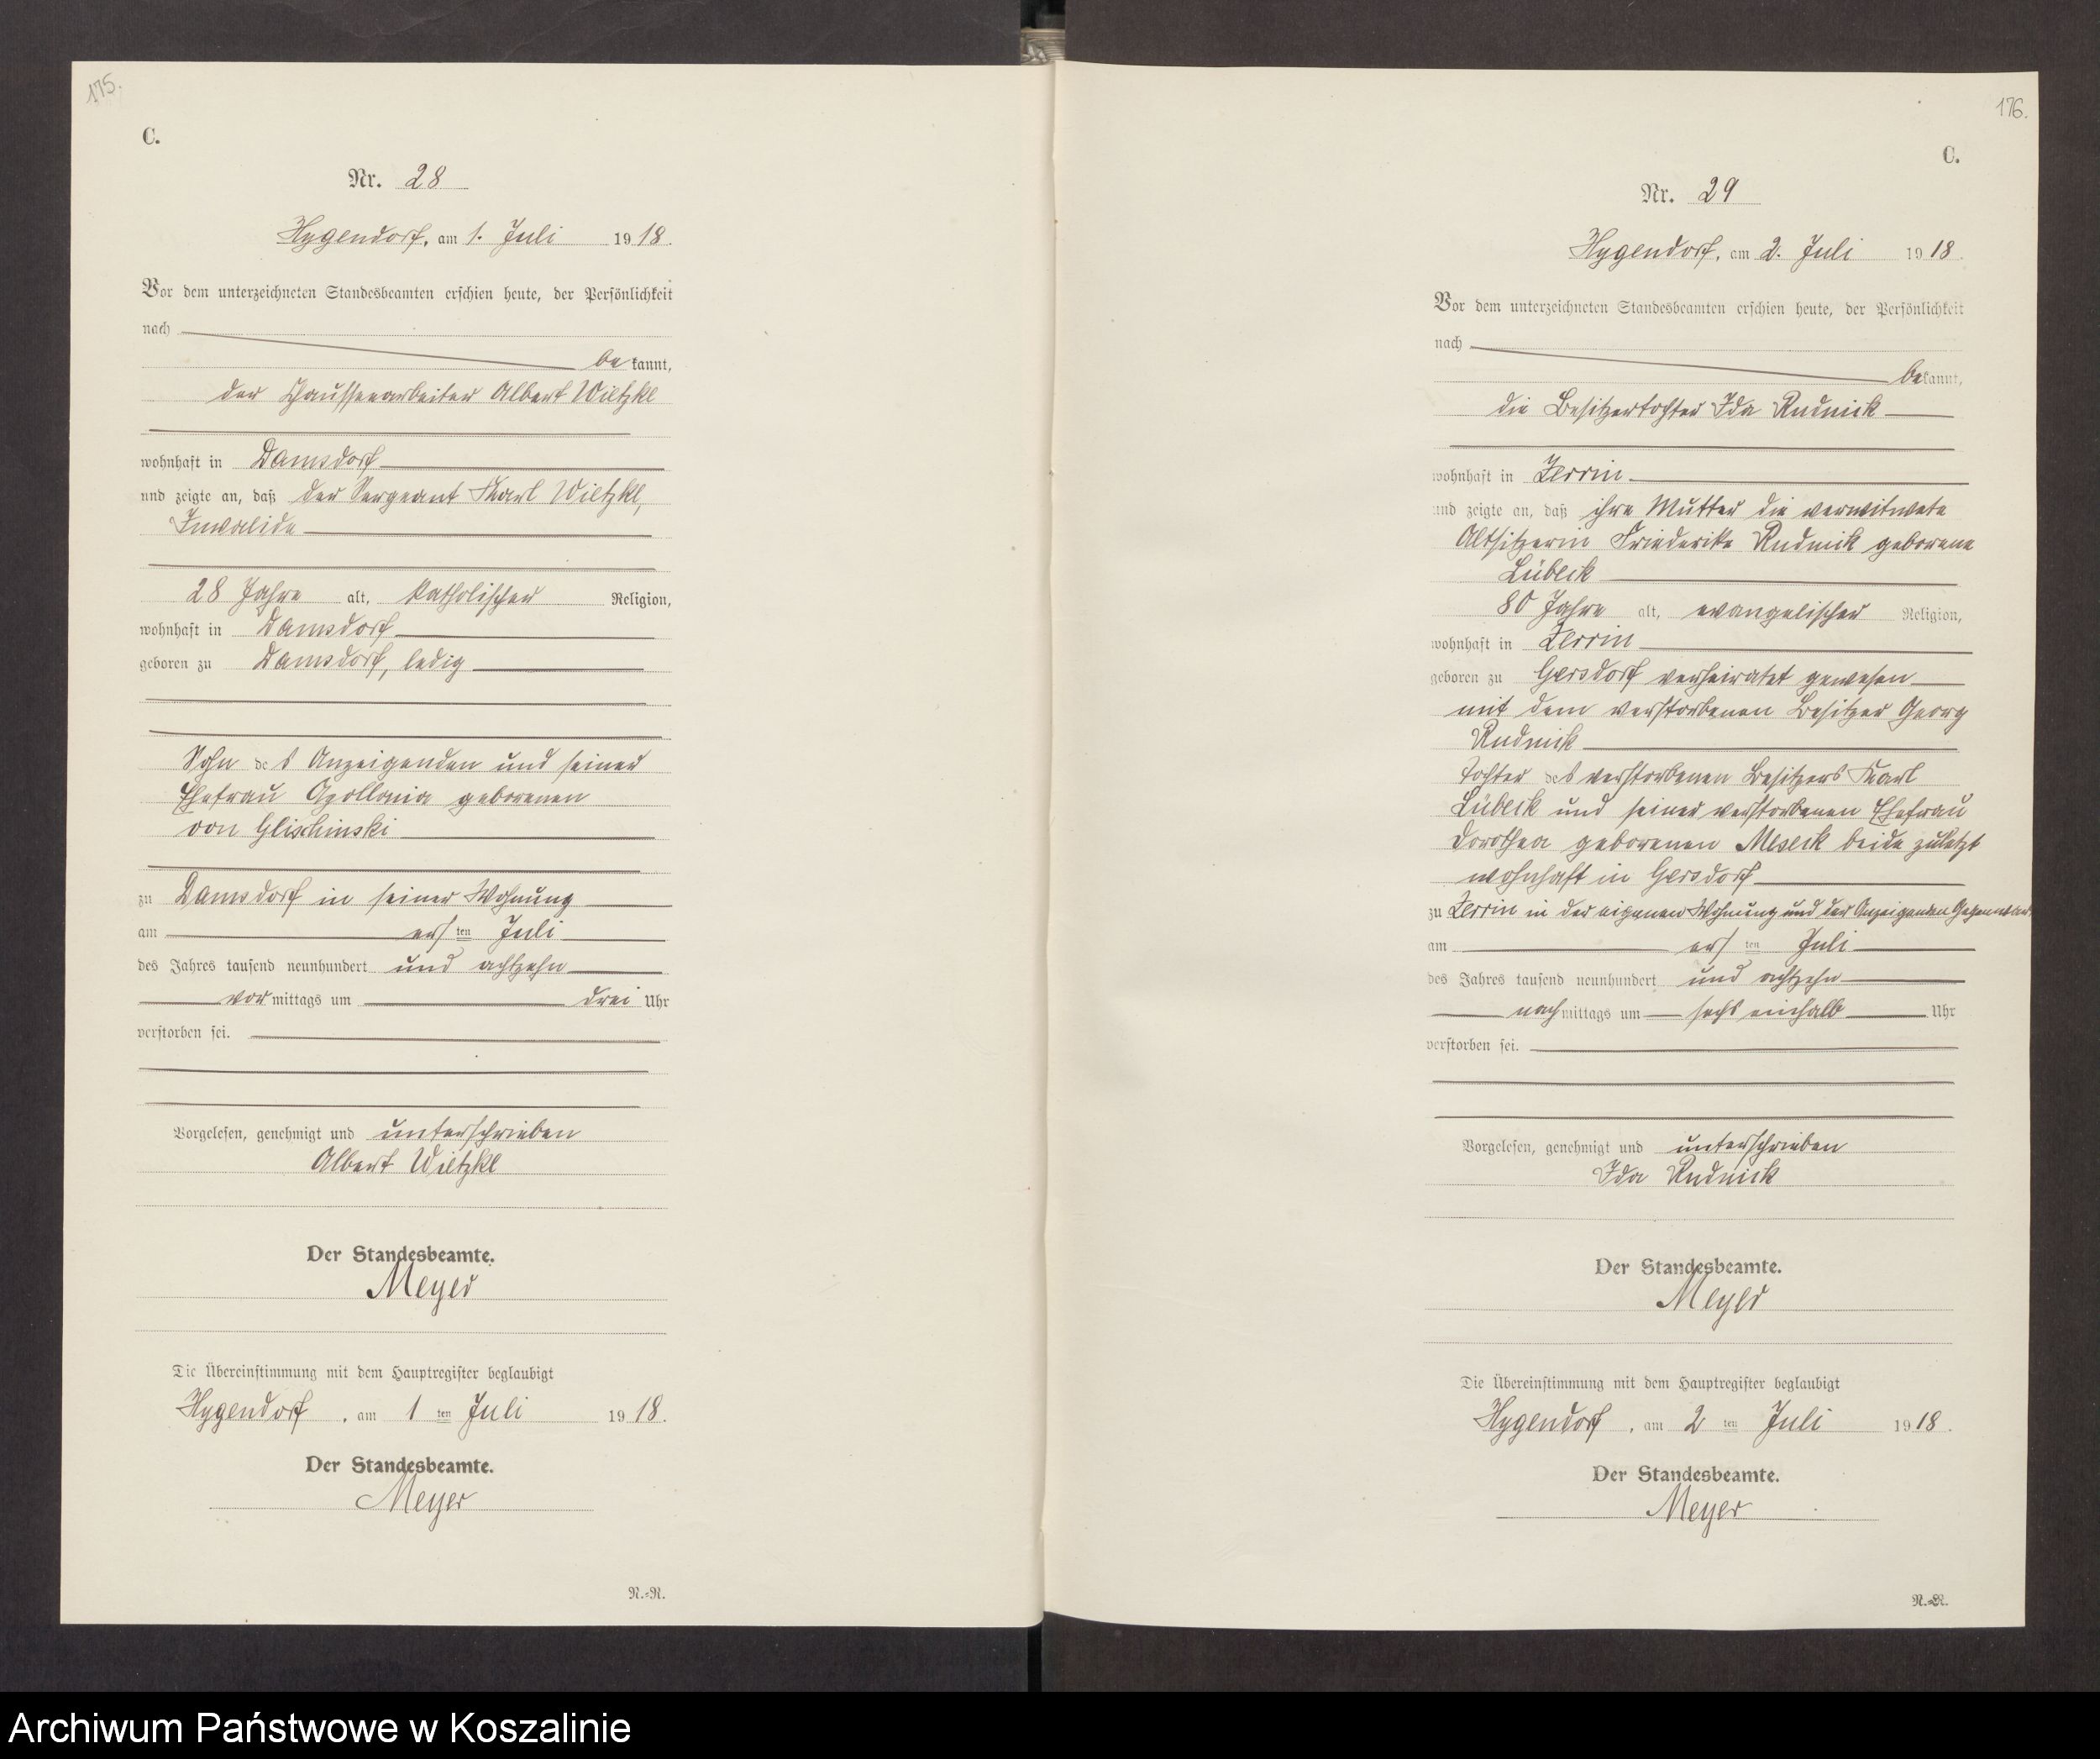 175.
C.
Nr. 28
Hygendorf, am 1. Juli 1918.
Vor dem unterzeichneten Standesbeamten erschien heute, der Persönlichkeit
nach
bekannt,
der Chausseearbeiter Albert Wietzke
wohnhaft in Damsdorf
und zeigte an, daß der Sergeant Karl Wietzke,
Invalide
28 Jahre alt, katholischer Religion,
wohnhaft in Damsdorf
geboren zu Damsdorf, ledig
Sohn des Anzeigenden und seiner
Ehefrau Apollonia geborenen
von Glischinski
zu Damsdorf in seiner Wohnung
am ersten Juli
des Jahres tausend neunhundert und achtzehn
vormittags um drei Uhr
verstorben sei.
Vorgelesen, genehmigt und unterschrieben
Albert Wietzke
Der Standesbeamte.
Meyer
Die Übereinstimmung mit dem Hauptregister beglaubigt
Hygendorf, am 1ten Juli 1918.
Der Standesbeamte.
Meyer
R.-R.
176.
C.
Nr. 29
Hygendorf, am 2. Juli 1918.
Vor dem unterzeichneten Standesbeamten erschien heute, der Persönlichkeit
nach
bekannt,
die Besitzertochter Ida Rudnick
wohnhaft in Zerrin
und zeigte an, daß ihre Mutter die verwitwete
Altsitzerin Friederike Rudnick geborene
Lübeck
80 Jahre alt, evangelischer Religion,
wohnhaft in Zerrin
geboren zu Gersdorf verheiratet gewesen
mit dem verstorbenen Besitzer Georg
Rudnick
Tochter des verstorbenen Besitzers Karl
Lübeck und seiner verstorbenen Ehefrau
Dorothea geborenen Meseck beide zuletzt
wohnhaft in Gersdorf
zu Zerrin in der eigenen Wohnung und der Anzeigenden Gegenwart
am ersten Juli
des Jahres tausend neunhundert und achtzehn
nachmittags um sechs einhalb Uhr
verstorben sei.
Vorgelesen, genehmigt und unterschrieben
Ida Rudnick
Der Standesbeamte.
Meyer
Die Übereinstimmung mit dem Hauptregister beglaubigt
Hygendorf, am 2ten Juli 1918.
Der Standesbeamte.
Meyer
R.-R.
Archiwum Państwowe w Koszalinie